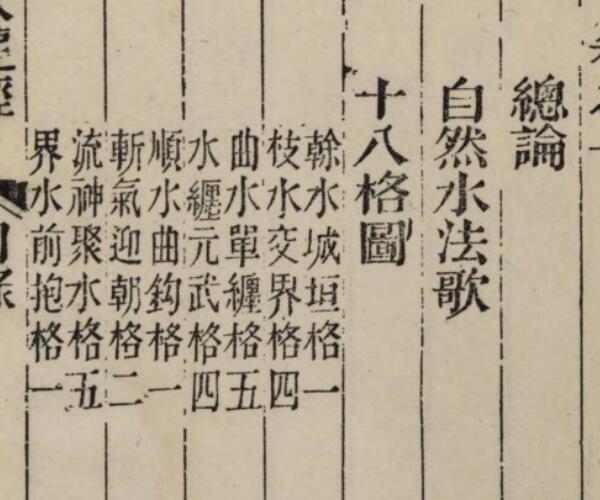 總論
自然水法歌
十八格圖
榦水城垣格一
枝水交界格四
曲水單纏格五
水纏元武格四
順水曲鈎格一
斬氣迎朝格二
流神聚水格五
界水前抱格一